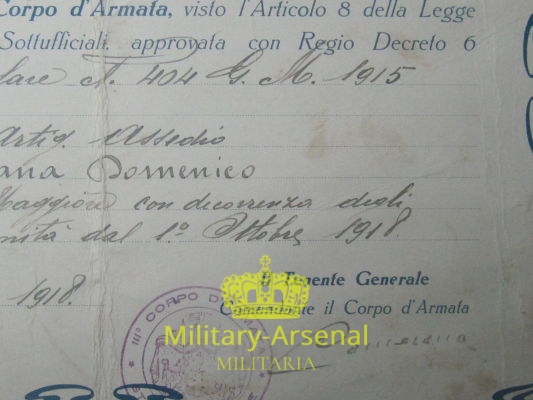 Corpo d'Armata, visto l'Articolo 8 della Legge
Sottufficiali, approvata con Regio Decreto 6
lare N. 404 G. M. 1915
Artig. Assedio
ana Domenico
Maggiore con decorrenza degli
nità dal 1.º Ottobre 1918.
1918.
Il Tenente Generale
Comandante il Corpo d'Armata
IIIº CORPO D'
Military-Arsenal
MILITARIA